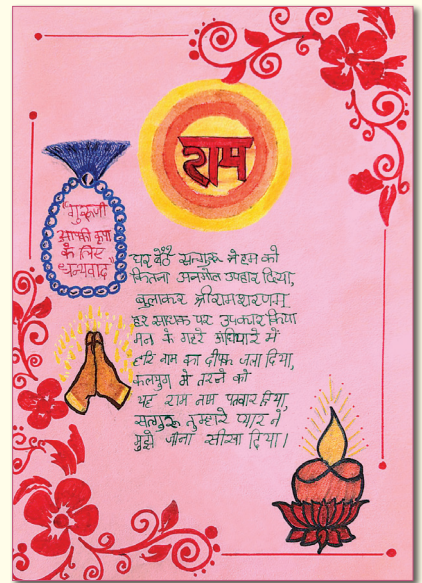 राम
"गुरुजी
आपकी कृपा
के लिए
धन्यवाद"
घर बैठे सत्गुरु ने हम को
कितना अनमोल उपहार दिया,
बुलाकर श्रीरामशरणम्
हर साधक पर उपकार किया
मन के गहरे अंधियारे में
हरि नाम का दीपक जला दिया,
कलयुग मे तरने को
यह राम नाम पतवार दिया,
सत्गुरु तुम्हारे प्यार ने
मुझे जीना सीखा दिया।